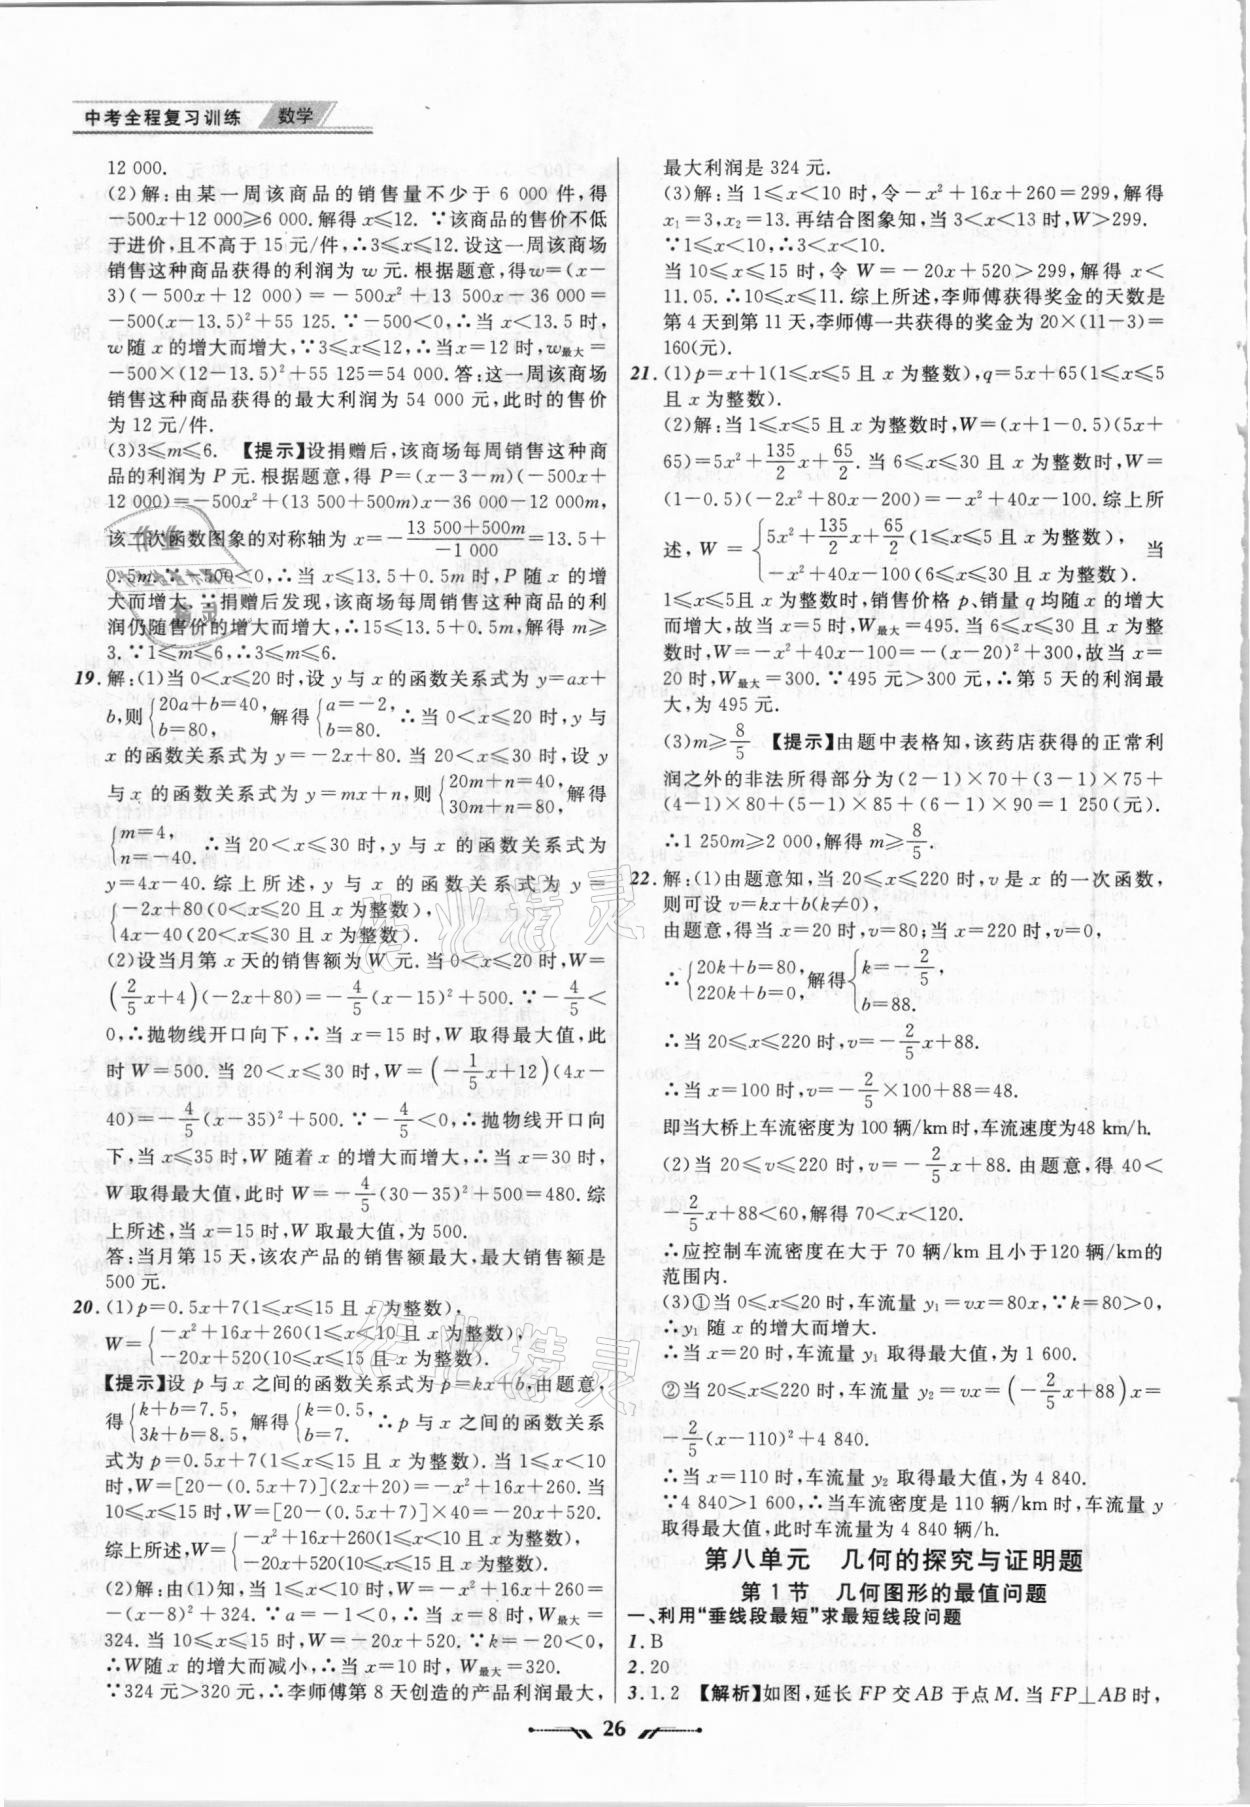 中考全程复习训练 数学
12 000.
(2)解:由某一周该商品的销售量不少于 6 000 件,得
-500x+12 000≥6 000. 解得 x≤12. ∵该商品的售价不低
于进价,且不高于 15 元/件,∴3≤x≤12. 设这一周该商场
销售这种商品获得的利润为 w 元. 根据题意,得w=(x-
3)(-500x+12 000)=-500x²+13 500x-36 000=
-500(x-13.5)²+55 125. ∵-500<0,∴当 x<13.5 时,
w 随 x 的增大而增大,∵3≤x≤12,∴当x=12 时,w最大=
-500×(12-13.5)²+55 125=54 000. 答:这一周该商场
销售这种商品获得的最大利润为 54 000 元,此时的售价
为 12 元/件.
(3)3≤m≤6. 【提示】设捐赠后,该商场每周销售这种商
品的利润为 P 元. 根据题意,得 P=(x-3-m)(-500x+
12 000)=-500x²+(13 500+500m)x-36 000-12 000m,
该二次函数图象的对称轴为 x=-(13 500+500m)/(-1 000)=13.5+
0.5m. ∵-500<0,∴当 x≤13.5+0.5m 时,P 随 x 的增
大而增大. ∵捐赠后发现,该商场每周销售这种商品的利
润仍随售价的增大而增大,∴15≤13.5+0.5m,解得 m≥
3. ∵1≤m≤6,∴3≤m≤6.
19. 解:(1)当 0<x≤20 时,设 y 与 x 的函数关系式为 y=ax+
b,则{20a+b=40, b=80, 解得{a=-2, b=80. ∴当 0<x≤20 时,y 与
x 的函数关系式为 y=-2x+80. 当 20<x≤30 时,设 y
与 x 的函数关系式为 y=mx+n,则{20m+n=40, 30m+n=80, 解得
{m=4, n=-40. ∴当 20<x≤30 时,y 与 x 的函数关系式为
y=4x-40. 综上所述,y 与 x 的函数关系式为 y=
{-2x+80(0<x≤20 且 x 为整数),
4x-40(20<x≤30 且 x 为整数).
(2)设当月第 x 天的销售额为 W 元. 当 0<x≤20 时,W=
(2/5x+4)(-2x+80)=-4/5(x-15)²+500. ∵-4/5<
0,∴抛物线开口向下,∴当 x=15 时,W 取得最大值,此
时 W=500. 当 20<x≤30 时,W=(-1/5x+12)(4x-
40)=-4/5(x-35)²+500. ∵-4/5<0,∴抛物线开口向
下,当 x≤35 时,W 随着 x 的增大而增大,∴当 x=30 时,
W 取得最大值,此时 W=-4/5(30-35)²+500=480. 综
上所述,当 x=15 时,W 取最大值,为 500.
答:当月第 15 天,该农产品的销售额最大,最大销售额是
500 元.
20. (1)p=0.5x+7(1≤x≤15 且 x 为整数),
W={-x²+16x+260(1≤x<10 且 x 为整数),
-20x+520(10≤x≤15 且 x 为整数).
【提示】设 p 与 x 之间的函数关系式为 p=kx+b,由题意,
得{k+b=7.5, 3k+b=8.5, 解得{k=0.5, b=7. ∴p 与 x 之间的函数关系
式为 p=0.5x+7(1≤x≤15 且 x 为整数). 当 1≤x<10
时,W=[20-(0.5x+7)](2x+20)=-x²+16x+260. 当
10≤x≤15 时,W=[20-(0.5x+7)]×40=-20x+520.
综上所述,W={-x²+16x+260(1≤x<10 且 x 为整数),
-20x+520(10≤x≤15 且 x 为整数).
(2)解:由(1)知,当 1≤x<10 时,W=-x²+16x+260=
-(x-8)²+324. ∵a=-1<0,∴当 x=8 时,W最大=
324. 当 10≤x≤15 时,W=-20x+520. ∵k=-20<0,
∴W随 x 的增大而减小,∴当 x=10 时,W最大=320.
∵324 元>320 元,∴李师傅第 8 天创造的产品利润最大,
最大利润是 324 元.
(3)解:当 1≤x<10 时,令-x²+16x+260=299,解得
x₁=3,x₂=13. 再结合图象知,当 3<x<13 时,W>299.
∵1≤x<10,∴3<x<10.
当 10≤x≤15 时,令 W=-20x+520>299,解得 x<
11.05. ∴10≤x≤11. 综上所述,李师傅获得奖金的天数是
第 4 天到第 11 天,李师傅一共获得的奖金为 20×(11-3)=
160(元).
21. (1)p=x+1(1≤x≤5 且 x 为整数),q=5x+65(1≤x≤5
且 x 为整数).
(2)解:当 1≤x≤5 且 x 为整数时,W=(x+1-0.5)(5x+
65)=5x²+135/2x+65/2. 当 6≤x≤30 且 x 为整数时,W=
(1-0.5)(-2x²+80x-200)=-x²+40x-100. 综上所
述,W={5x²+135/2x+65/2(1≤x≤5 且 x 为整数), 当
-x²+40x-100(6≤x≤30 且 x 为整数).
1≤x≤5且 x 为整数时,销售价格 p、销量 q 均随 x 的增大
而增大,故当 x=5 时,W最大=495. 当 6≤x≤30 且 x 为整
数时,W=-x²+40x-100=-(x-20)²+300,故当 x=
20 时,W最大=300. ∵495 元>300 元,∴第 5 天的利润最
大,为 495 元.
(3)m≥8/5 【提示】由题中表格知,该药店获得的正常利
润之外的非法所得部分为(2-1)×70+(3-1)×75+
(4-1)×80+(5-1)×85+(6-1)×90=1 250(元).
∴1 250m≥2 000,解得 m≥8/5.
22. 解:(1)由题意知,当 20≤x≤220 时,v 是 x 的一次函数,
则可设 v=kx+b(k≠0),
由题意,得当 x=20 时,v=80;当 x=220 时,v=0,
∴{20k+b=80, 220k+b=0, 解得{k=-2/5, b=88.
∴当 20≤x≤220 时,v=-2/5x+88.
∴当 x=100 时,v=-2/5×100+88=48.
即当大桥上车流密度为 100 辆/km时,车流速度为48 km/h.
(2)当 20≤v≤220 时,v=-2/5x+88. 由题意,得 40<
-2/5x+88<60,解得 70<x<120.
∴应控制车流密度在大于 70 辆/km且小于120 辆/km的
范围内.
(3)①当 0≤x≤20 时,车流量 y₁=vx=80x,∵k=80>0,
∴y₁ 随 x 的增大而增大.
∴当 x=20 时,车流量 y₁ 取得最大值,为 1 600.
②当 20≤x≤220 时,车流量 y₂=vx=(-2/5x+88)x=
-2/5(x-110)²+4 840.
∴当 x=110 时,车流量 y₂ 取得最大值,为 4 840.
∵4 840>1 600,∴当车流密度是 110 辆/km时,车流量 y
取得最大值,此时车流量为 4 840 辆/h.
第八单元 几何的探究与证明题
第 1 节 几何图形的最值问题
一、利用“垂线段最短”求最短线段问题
1. B
2. 20
3. 1.2 【解析】如图,延长 FP 交 AB 于点 M. 当 FP⊥AB 时,
26
作业精灵
作业精灵